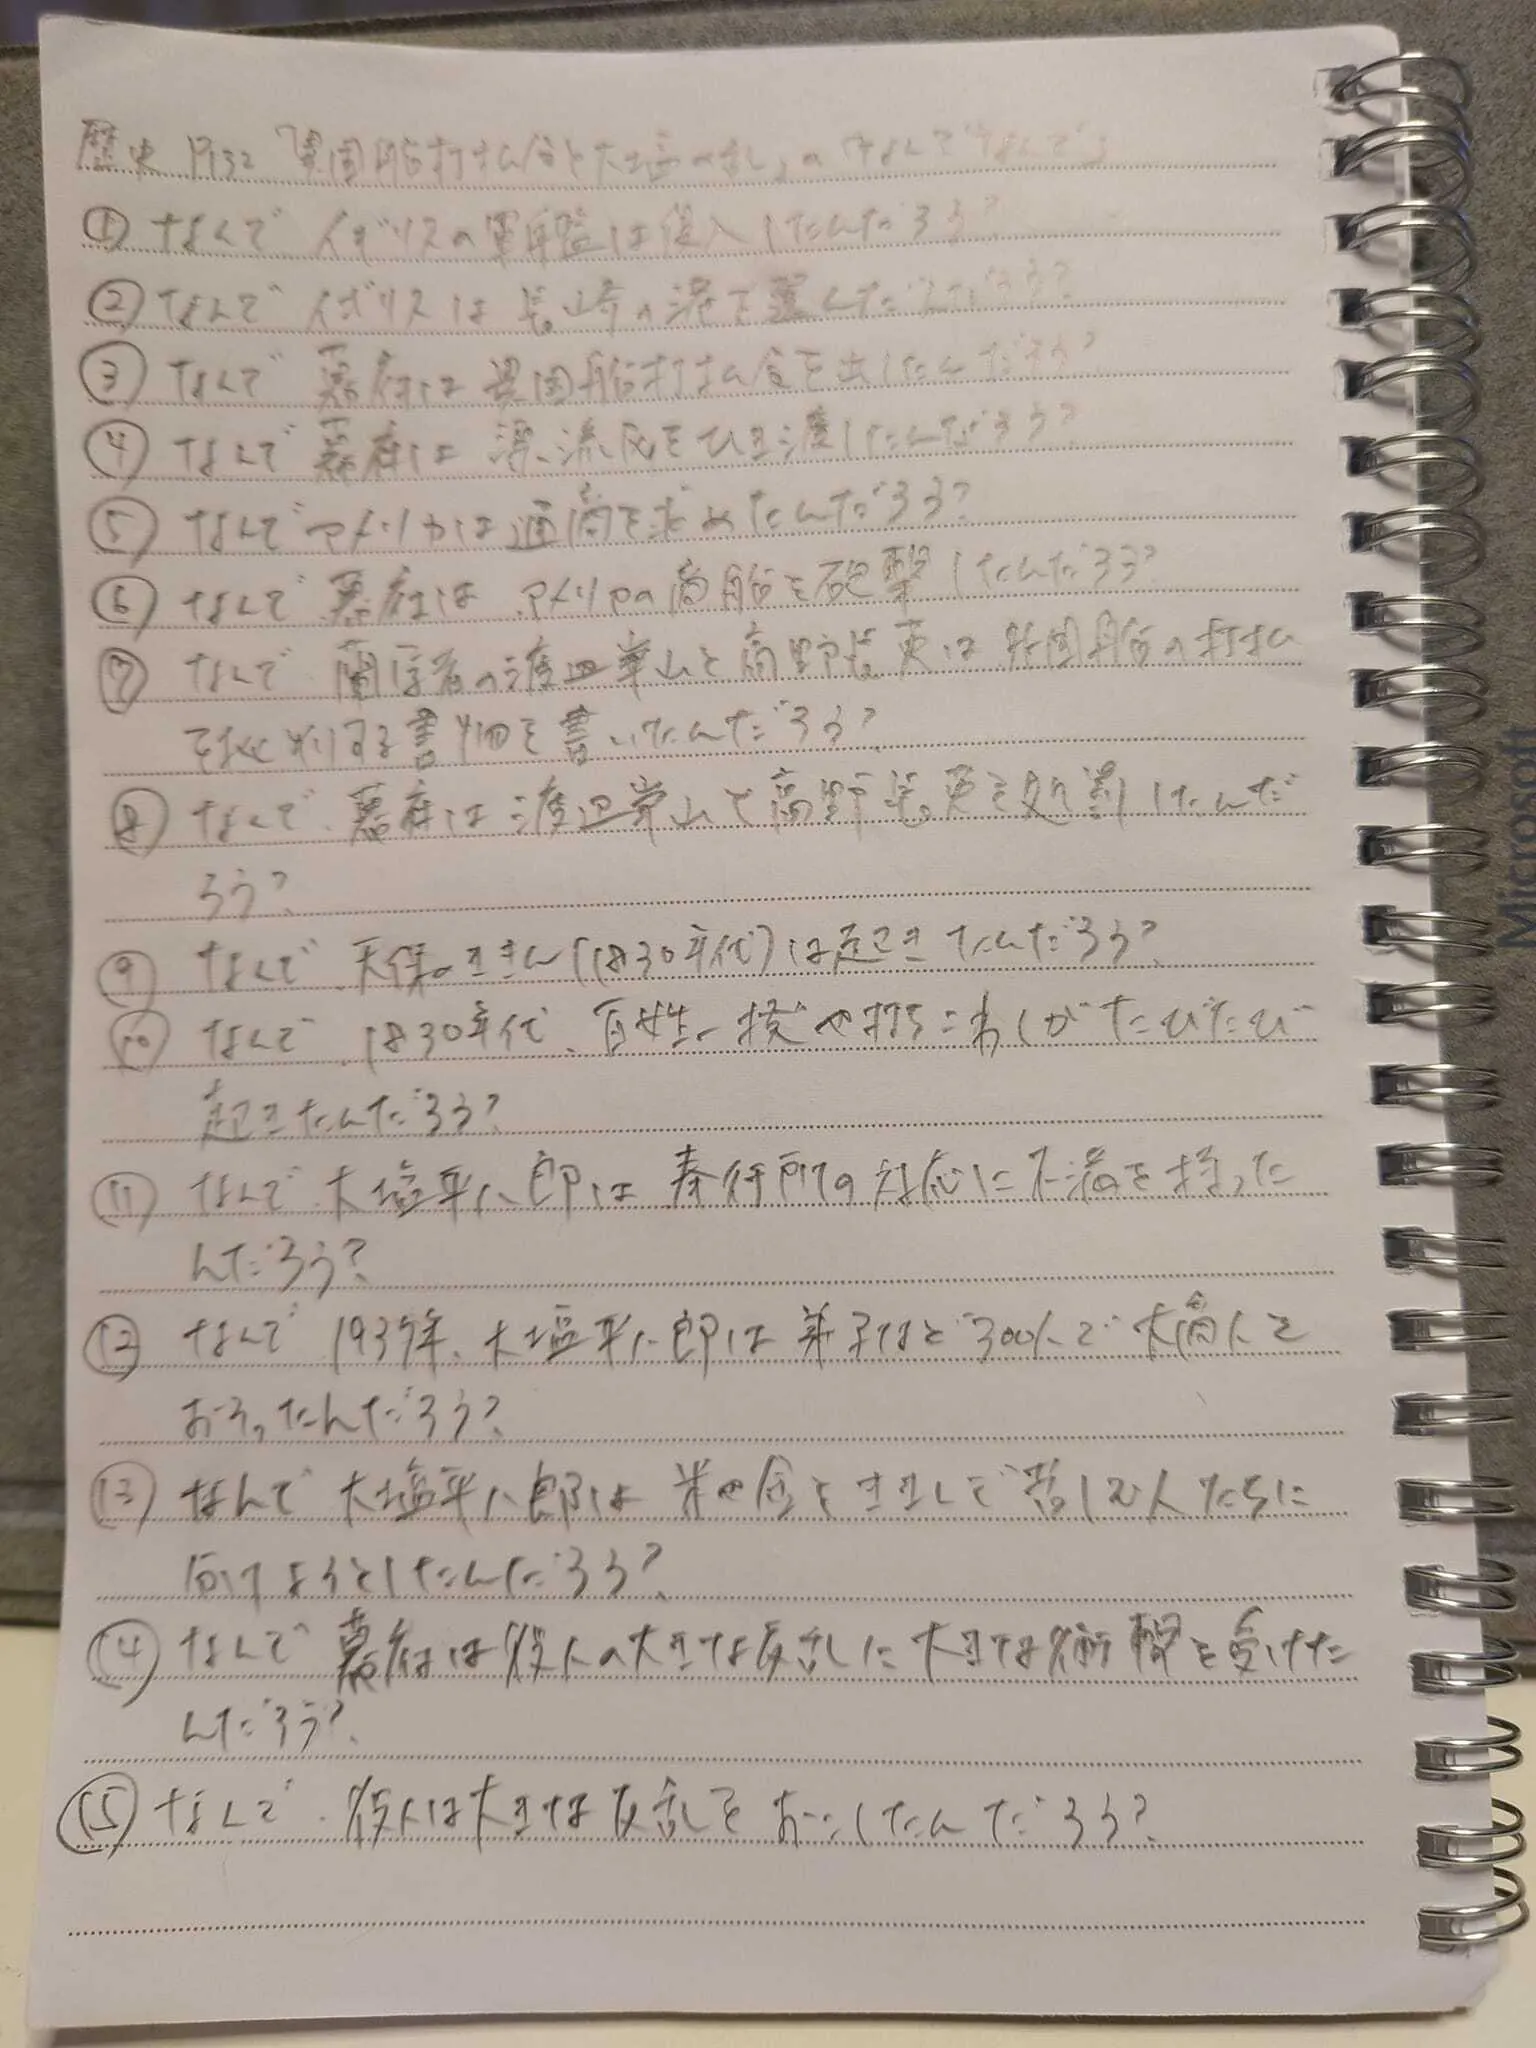 歴史 P132 「異国船打払令と大塩の乱」の「なんでなんで」
① なんで イギリスの軍艦は侵入したんだろう?
② なんで イギリスは長崎の港を選んだんだろう?
③ なんで 幕府は異国船打払令を出したんだろう?
④ なんで 幕府は 漂流民をひき渡したんだろう?
⑤ なんで アメリカは通商を求めたんだろう?
⑥ なんで 幕府は アメリカの商船を砲撃したんだろう?
⑦ なんで 蘭学者の渡辺崋山と高野長英は 外国船の打払
を批判する書物を書いたんだろう?
⑧ なんで 幕府は渡辺崋山と高野長英を処罰したんだ
ろう?
⑨ なんで 天保のききん(1830年代)は起きたんだろう?
⑩ なんで 1830年代、百姓一揆や打ちこわしがたびたび
起きたんだろう?
⑪ なんで 大塩平八郎は 奉行所の対応に不満を持った
んだろう?
⑫ なんで 1937年、大塩平八郎は 弟子など300人で大商人を
おそったんだろう?
⑬ なんで 大塩平八郎は 米や金をききんで苦しむ人たちに
向けようとしたんだろう?
⑭ なんで 幕府は役人の大きな反乱に大きな衝撃を受けた
んだろう?
⑮ なんで 役人は大きな反乱をおこしたんだろう?
Microsoft